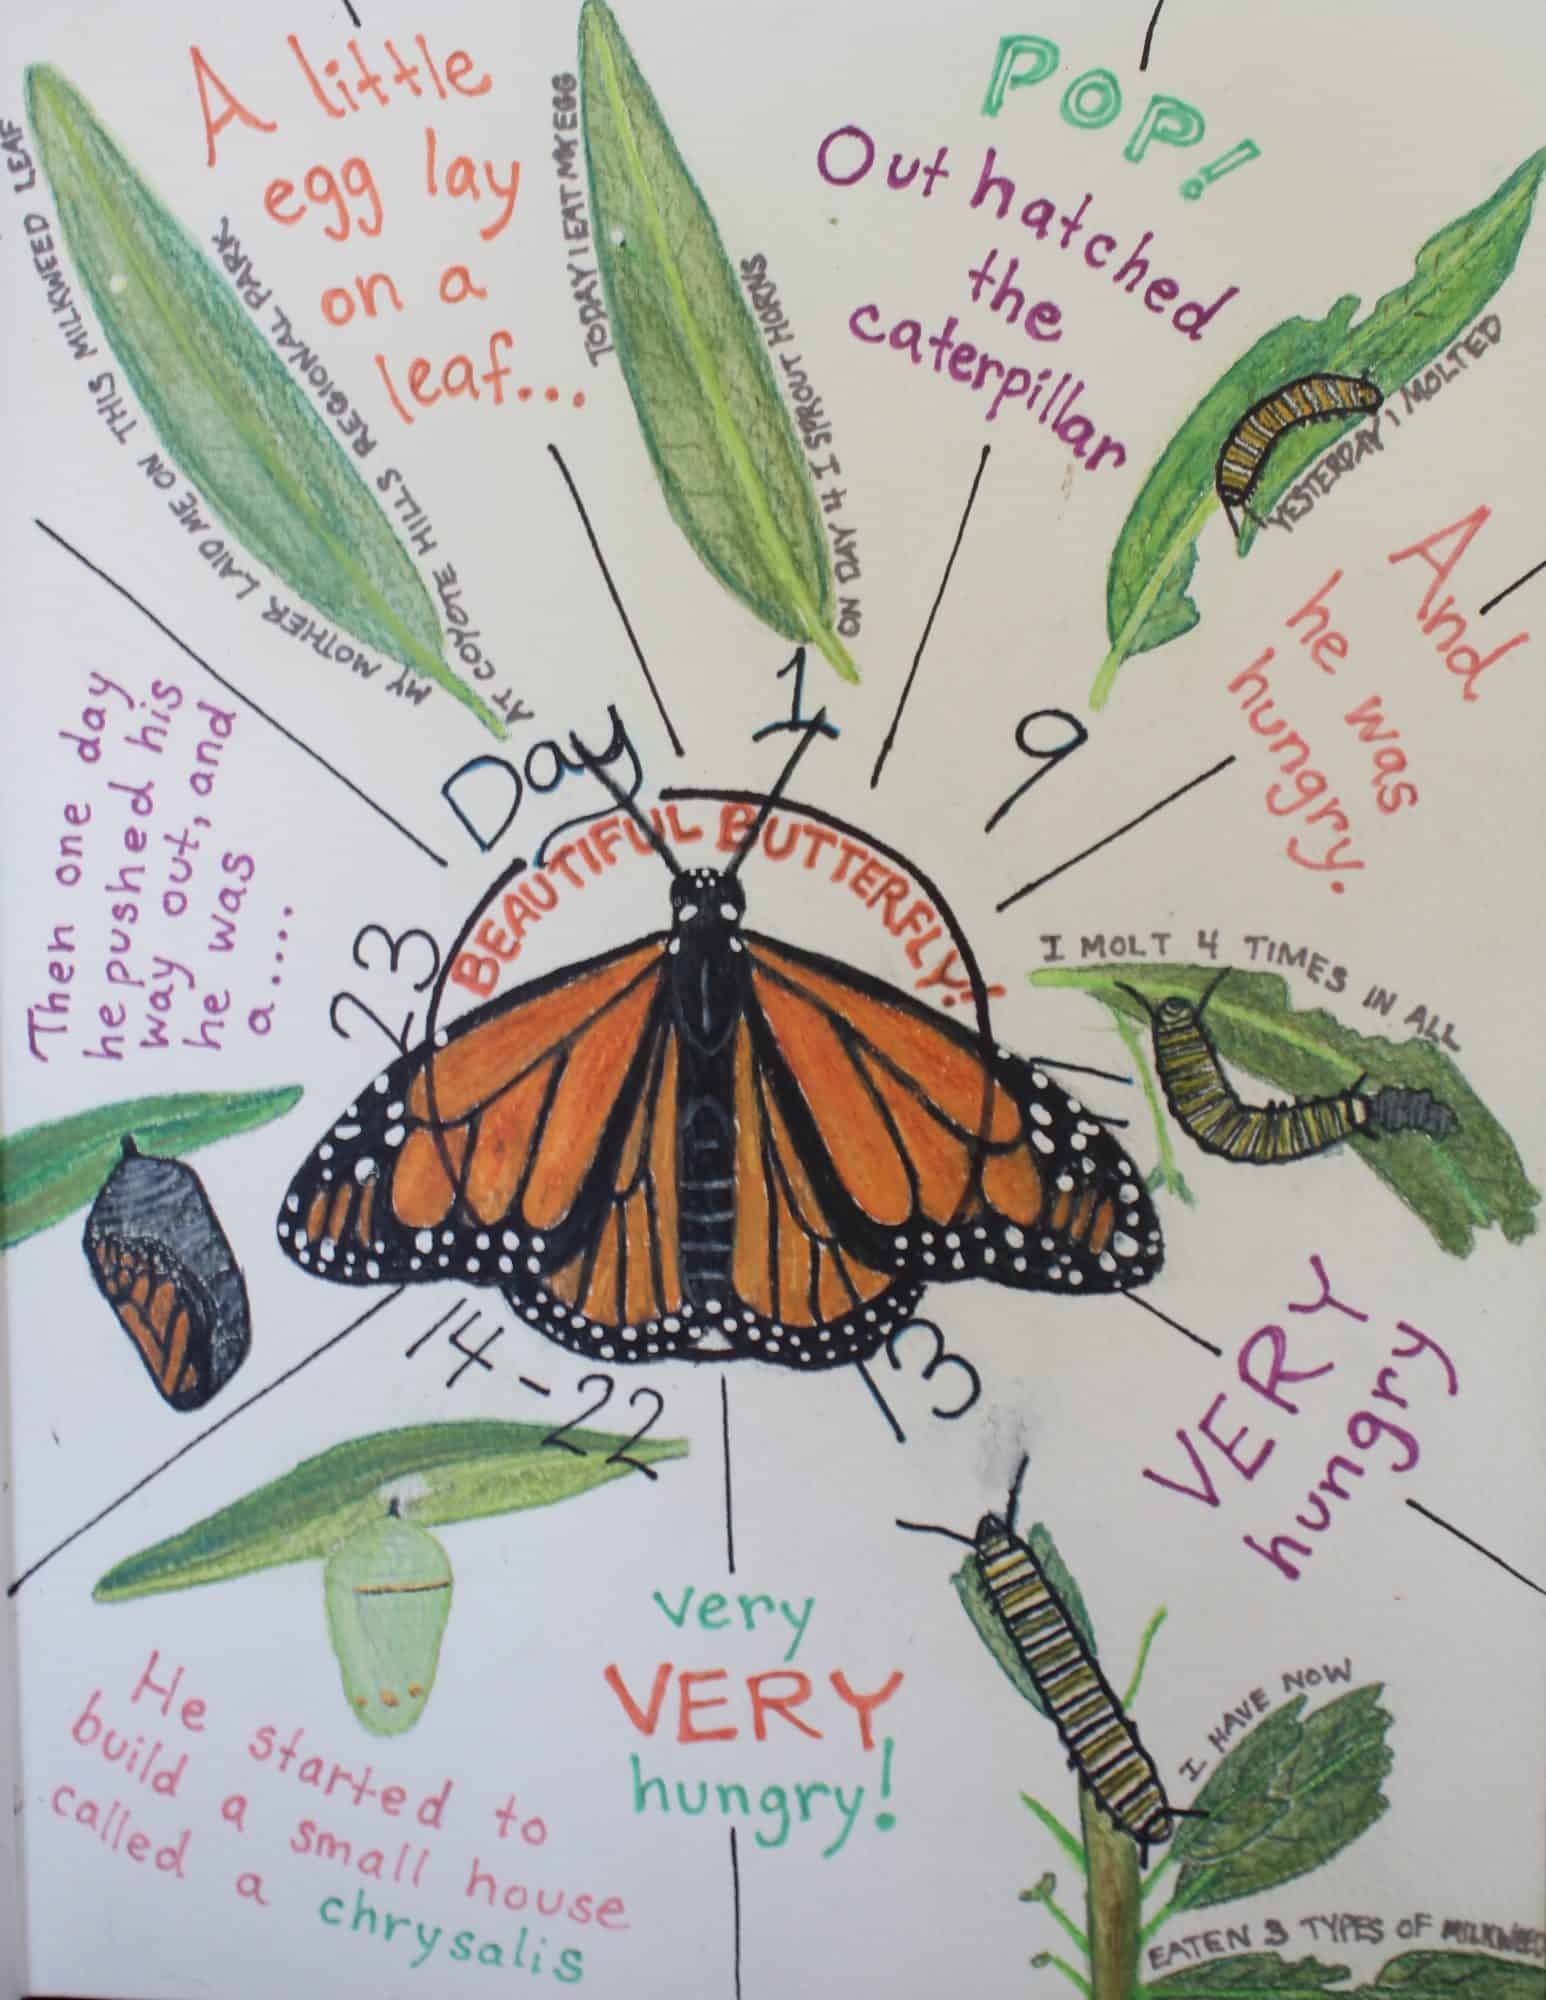 A little
egg lay
on a
leaf...
MY MOTHER LAID ME ON THIS MILKWEED LEAF
AT COYOTE HILLS REGIONAL PARK
Day
TODAY I EAT MY EGG
ON DAY 4 I SPROUT HORNS
1
POP!
Out hatched
the
caterpillar
YESTERDAY I MOLTED
9
And
he was
hungry.
I MOLT 4 TIMES IN ALL
11
VERY
hungry
I HAVE NOW
EATEN 3 TYPES OF MILKWEED
13
very
VERY
hungry!
14-22
He started to
build a small house
called a chrysalis
23
Then one day
he pushed his
way out, and
he was
a....
BEAUTIFUL BUTTERFLY!